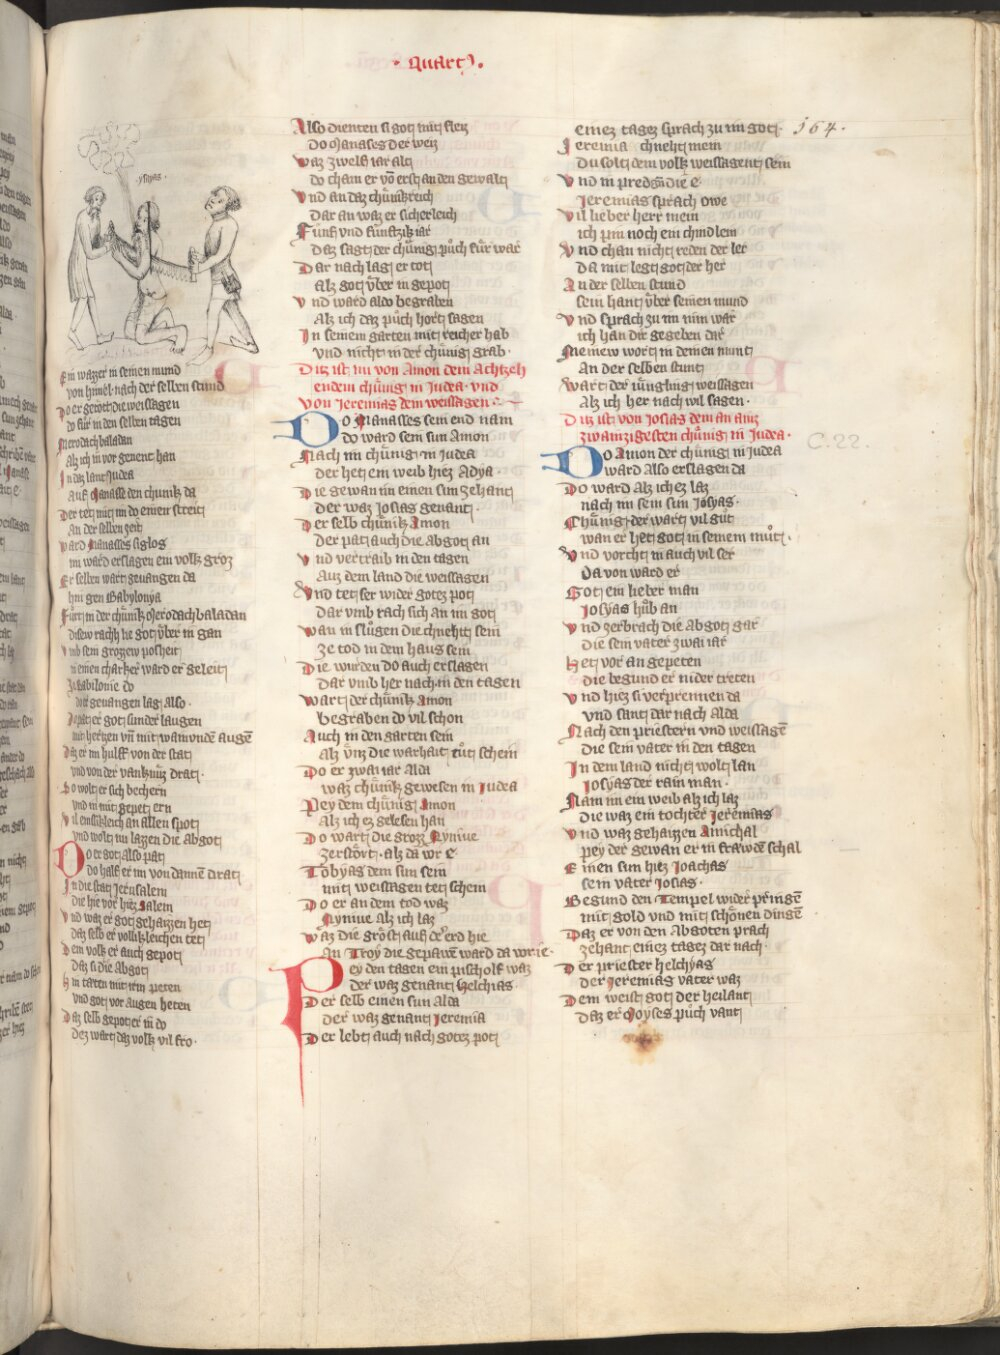 · Quart9 ·
364.
ysayas
Ein wazzer in seinen mund
von himel · nach der selben stund
Do er getött die weissagen
do für in den selben tagen
Merodach baladan
Alz ich iu vor genent han
In daz lant Judea
auf Manasse den chunik da
Der tet mit im do einen streit
An der selben zeit
Ward Manasses siglos
im ward erslagen ein volk groz
Er selben wart geuangen da
hin gen Babylonya
Fürt in der chünik Merodach baladan
disew rach hie got vber in gan
Vmb sein grozzew posheit
in einen charker ward er geleit
In Babilonie do
der geuangen lag also ·
Do pat er got sunder laugen
mit hertzen vn mit wainunden augē
Daz er im hulff von der stat
vnd von der vanknüzz drat ·
So wolt er sich bechern
vnd in mit gepet ern
Vleissikleich an allen spot
vnd wolt nu lazzen die abgot
Do er got also pat
do half er im von dannē drat
In die stat Jerusalem
die hie vor hiez Salem
Vnd waz er got gehaizzen het
daz selb er vollikleichen tet
Dem volk er auch gepot
daz si die Abgot
Hin taten mit irm peten
vnd got vor augen heten
Daz selb gepot er in do
dez wart daz volk vil fro ·
Also dienten si got mit fleiz
Do Manases der weiz
Waz zwelf iar alt
do cham er võ erst an den gewalt
Vnd an daz chünikreich
Dar an waz er sicherleich
Fünf vnd fünftzik iar
Daz sagt der chünig püch für war
Dar nach lag er tot
Alz got vber in gepot
Vnd ward aldo begraben
Alz ich daz püch hort sagen
In seinem garten mit reicher hab
vnd nicht in der chünig grab ·
Ditz ist nu von Amon dem Achtzeh
endem chünig in Judea · vnd
von Jeremias dem weissagen ·
Do Manasses sein end nam
do ward sein sun Amon
Nach im chünig in Judea
der het ein weib hiez Adya ·
Die gewan im einen sun zehant
der waz Josias genant ·
Der selb chünik Amon
Der pat auch die Abgot an
Vnd vertraib in den tagen
Auz dem land die weissagen
Vnd tet ser wider gotez pot
Dar vmb rach sich an im got
Wan in slügen die chneht sein
Ze tod in dem haus sein
Die wurden do auch erslagen
Dar vmb her nach in den tagen
Wart der chünik Amon
begraben do vil schon
Auch in den garten sein
Alz vnz die warhait tüt schein
Do er zwai iar alda
waz chünik gewesen in Judea
Pey dem chünig Amon
Alz ich ez gelesen han
Do wart die grozz Nyniue
Zerstört · alz da vor e ·
Tobyas dem sun sein
mit weissagen tet schein
Do er an dem tod waz
Nyniue Alz ich laz
Waz die gröst auf der erd hie
An Troy die gepawē ward da vor ie ·
Pey den tagen ein pischolf waz
der waz genant Helchias ·
Der selb einen sun alda
der waz genant Jeremia
Der lebt auch nach gotez pot
einez tagez sprach zu im got ·
Jeremia chneht mein
Du solt dem volk weissagent sein
Vnd in predigē die e
Jeremias sprach owe
Vil lieber herr mein
ich pin noch ein chindlein
Vnd chan nicht reden der ler
Da mit legt got der her
An der selben stund
sein hant vber seinen mund
Vnd sprach zu im nim war
ich han dir gegeben dar
Meinew wort in deinen munt
An der selben stunt
Wart der iüngling weissagen
Alz ich her nach wil sagen ·
Ditz ist von Josias dem an ainz
zwainzigesten chünig in Judea ·
C. 22.
Do Amon der chünig in Judea
ward Also erslagen da
Do ward Alz ich ez laz
nach im sein sun Josyas ·
Chünig der wart vil güt
wan er het got in seinem müt ·
Vnd vorcht in auch vil ser
Da von ward er
Got ein lieber man
Josyas hüb an
Vnd zerbrach die Abgot gar
die sein vater zwai iar
Het vor an gepeten
die begund er nider treten
Vnd hiez si verprennen da
vnd sant dar nach Alda
Nach den priestern vnd weissagē
die sein vater in den tagen
In dem land nicht wolt lan
Josyas der rain man ·
Nam im ein weib alz ich laz
die waz ein tochter Jeremias
Vnd waz gehaizzen Amichal
pey der gewan er in frawdē schal
Einen sun hiez Joachas
sein vater Josias ·
Begund den Tempel wider pringē
mit gold vnd mit schönen dingē
Daz er von den Abgoten prach
zehant einez tagez dar nach ·
Der priester Helchyas
der Jeremias vater waz
Dem weist got der heilant
daz er Moyses püch vant